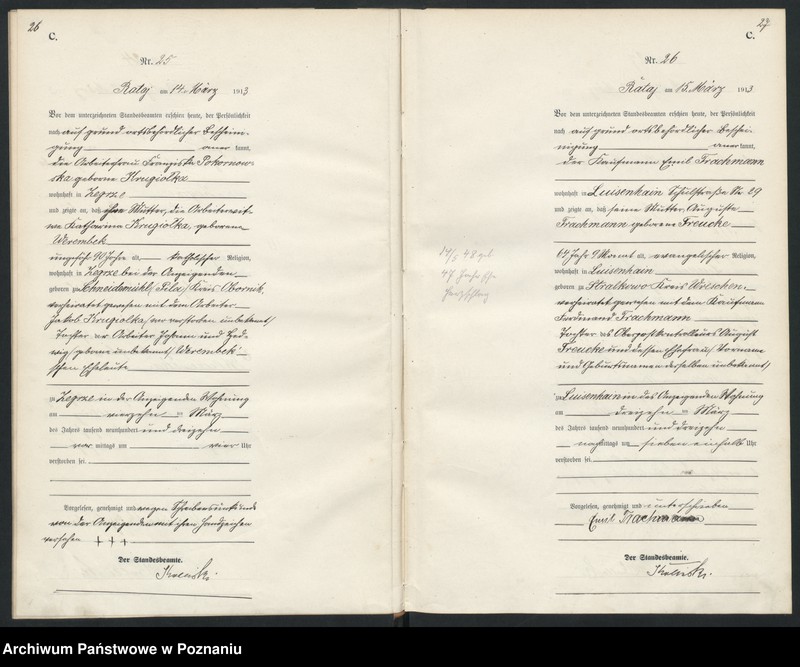 26
C.
Nr. 25
Rataj am 14. März 1913
Vor dem unterzeichneten Standesbeamten erschien heute, der Persönlichkeit
nach auf Grund ortsbehördlicher Beschei-
gung anerkannt,
die Arbeiterfrau Franziska Pokornow-
ska geborne Krugiolka
wohnhaft in Zegrze
und zeigte an, daß ihre Mutter, die Arbeiterwit-
we Katharina Krugiolka, geborene
Werembek
90 Jahre alt, katholischer Religion,
wohnhaft in Zegrze bei der Anzeigenden
geboren zu Schneidemühl, Kreis Obornik,
verheiratet gewesen mit dem Arbeiter
Jakob Krugiolka, verstorben unbekannt
Tochter der Arbeiter Johann und Hed-
wig, geborene unbekannt, Werembek-
schen Eheleute
zu Zegrze in der Anzeigenden Wohnung
am vierzehn ten März
des Jahres tausend neunhundert und dreizehn
vor mittags um vier Uhr
verstorben sei.
Vorgelesen, genehmigt und wegen Schreibensunkunde
von der Anzeigenden mit ihren Handzeichen
versehen + + +
Der Standesbeamte.
27
C.
Nr. 26
Rataj am 15. März 1913
Vor dem unterzeichneten Standesbeamten erschien heute, der Persönlichkeit
nach auf Grund ortsbehördlicher Beschei-
nigung anerkannt,
der Kaufmann Emil Trachmann
wohnhaft in Luisenhain Schulstraße Nr. 29
und zeigte an, daß seine Mutter Auguste
Trachmann geborene Freucke
64 Jahr 9 Monat alt, evangelischer Religion,
wohnhaft in Luisenhain
geboren zu Stralkowo Kreis Wreschen,
verheiratet gewesen mit dem Kaufmann
Ferdinand Trachmann
Tochter des Oberpostkontrolleurs August
Freucke und dessen Ehefrau, Vorname
und Geburtsnamen derselben unbekannt,
zu Luisenhain in des Anzeigenden Wohnung
am dreizehn ten März
des Jahres tausend neunhundert und dreizehn
nachmittags um sieben einhalb Uhr
verstorben sei.
Vorgelesen, genehmigt und unterschrieben
Emil Trachmann
Der Standesbeamte.
Archiwum Państwowe w Poznaniu